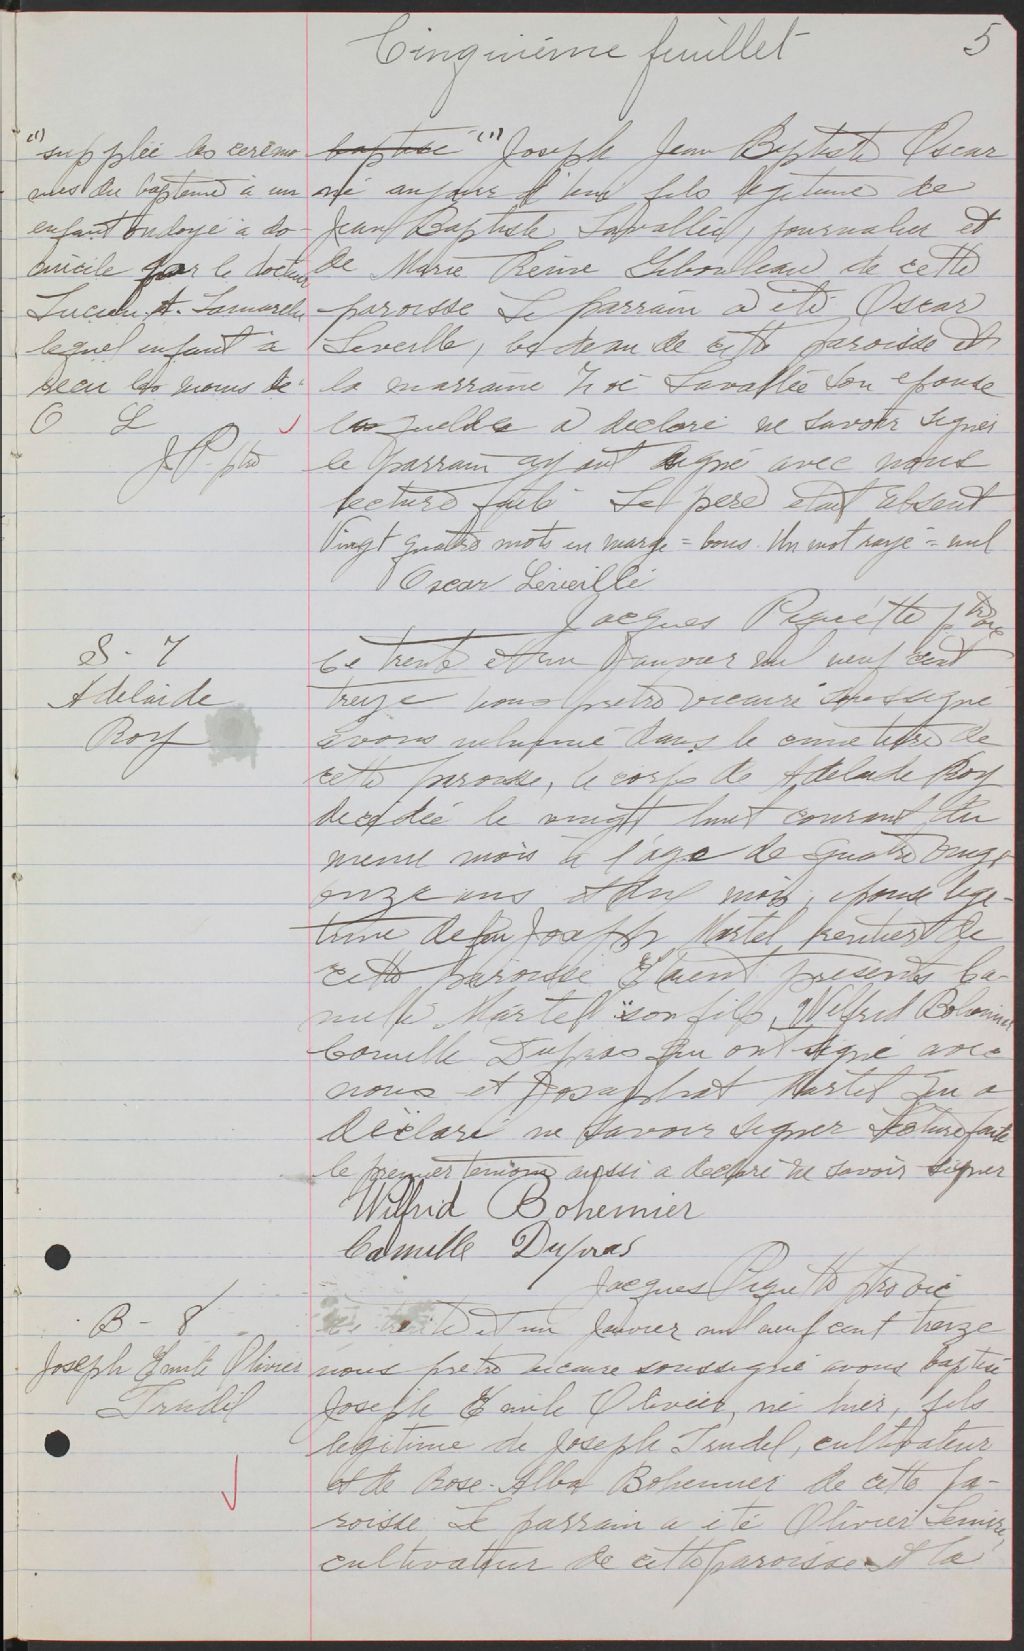 Cinquième feuillet 5
(1) supplée les cérémo
nies du baptême à un
enfant ondoyé à do-
micile par le docteur
Lucien A. Lamarche
lequel enfant a
recu les noms de:
O L
J.P. ptre
baptisé (1) Joseph Jean Baptiste Oscar
né aujourd'hui fils légitime de
Jean Baptiste Lavallée, journalier et
de Marie Reine Gibouleau de cette
paroisse Le parrain a été Oscar
Leveille, bedeau de cette paroisse et
la marraine Zoé Lavallée son épouse
laquelle a déclaré ne savoir signer
le parrain ayant signé avec nous
lecture faite Le père était absent
Vingt quatre mots en marge = bons. Un mot rayé = nul
Oscar Léveillé
Jacques Piquette ptre vic
S - 7
Adelaide
Roy
Le trente et un Janvier mil neuf cent
treize nous prêtre vicaire soussigné
avons inhumé dans le cimetière de
cette paroisse, le corps de Adelaide Roy
decédée le vingt huit courant du
meme mois à l'âge de quatre vingt
onze ans et mois, épouse légi-
time de feu Joseph Martel, rentier de
cette paroisse Etaient présents Ca-
mille Martel son fils, Wilfrid Bohemier
Camille Dupras qui ont signé avec
nous et Josaphat Martel qui a
déclaré ne savoir signer Lecture faite
le premier temoin aussi a déclaré ne savoir signer
Wilfrid Bohemier
Camille Dupras
Jacques Piquette ptre vic
B - 8
Joseph Emile Olivier
Trudel
Le trente et un Janvier mil neuf cent treize
nous pretre vicaire soussigné avons baptisé
Joseph Emile Olivier, né hier, fils
légitime de Joseph Trudel, cultivateur
et de Rose-Alba Bohemier de cette pa-
roisse. Le parrain a été Olivier Lemire,
cultivateur de cette paroisse et la